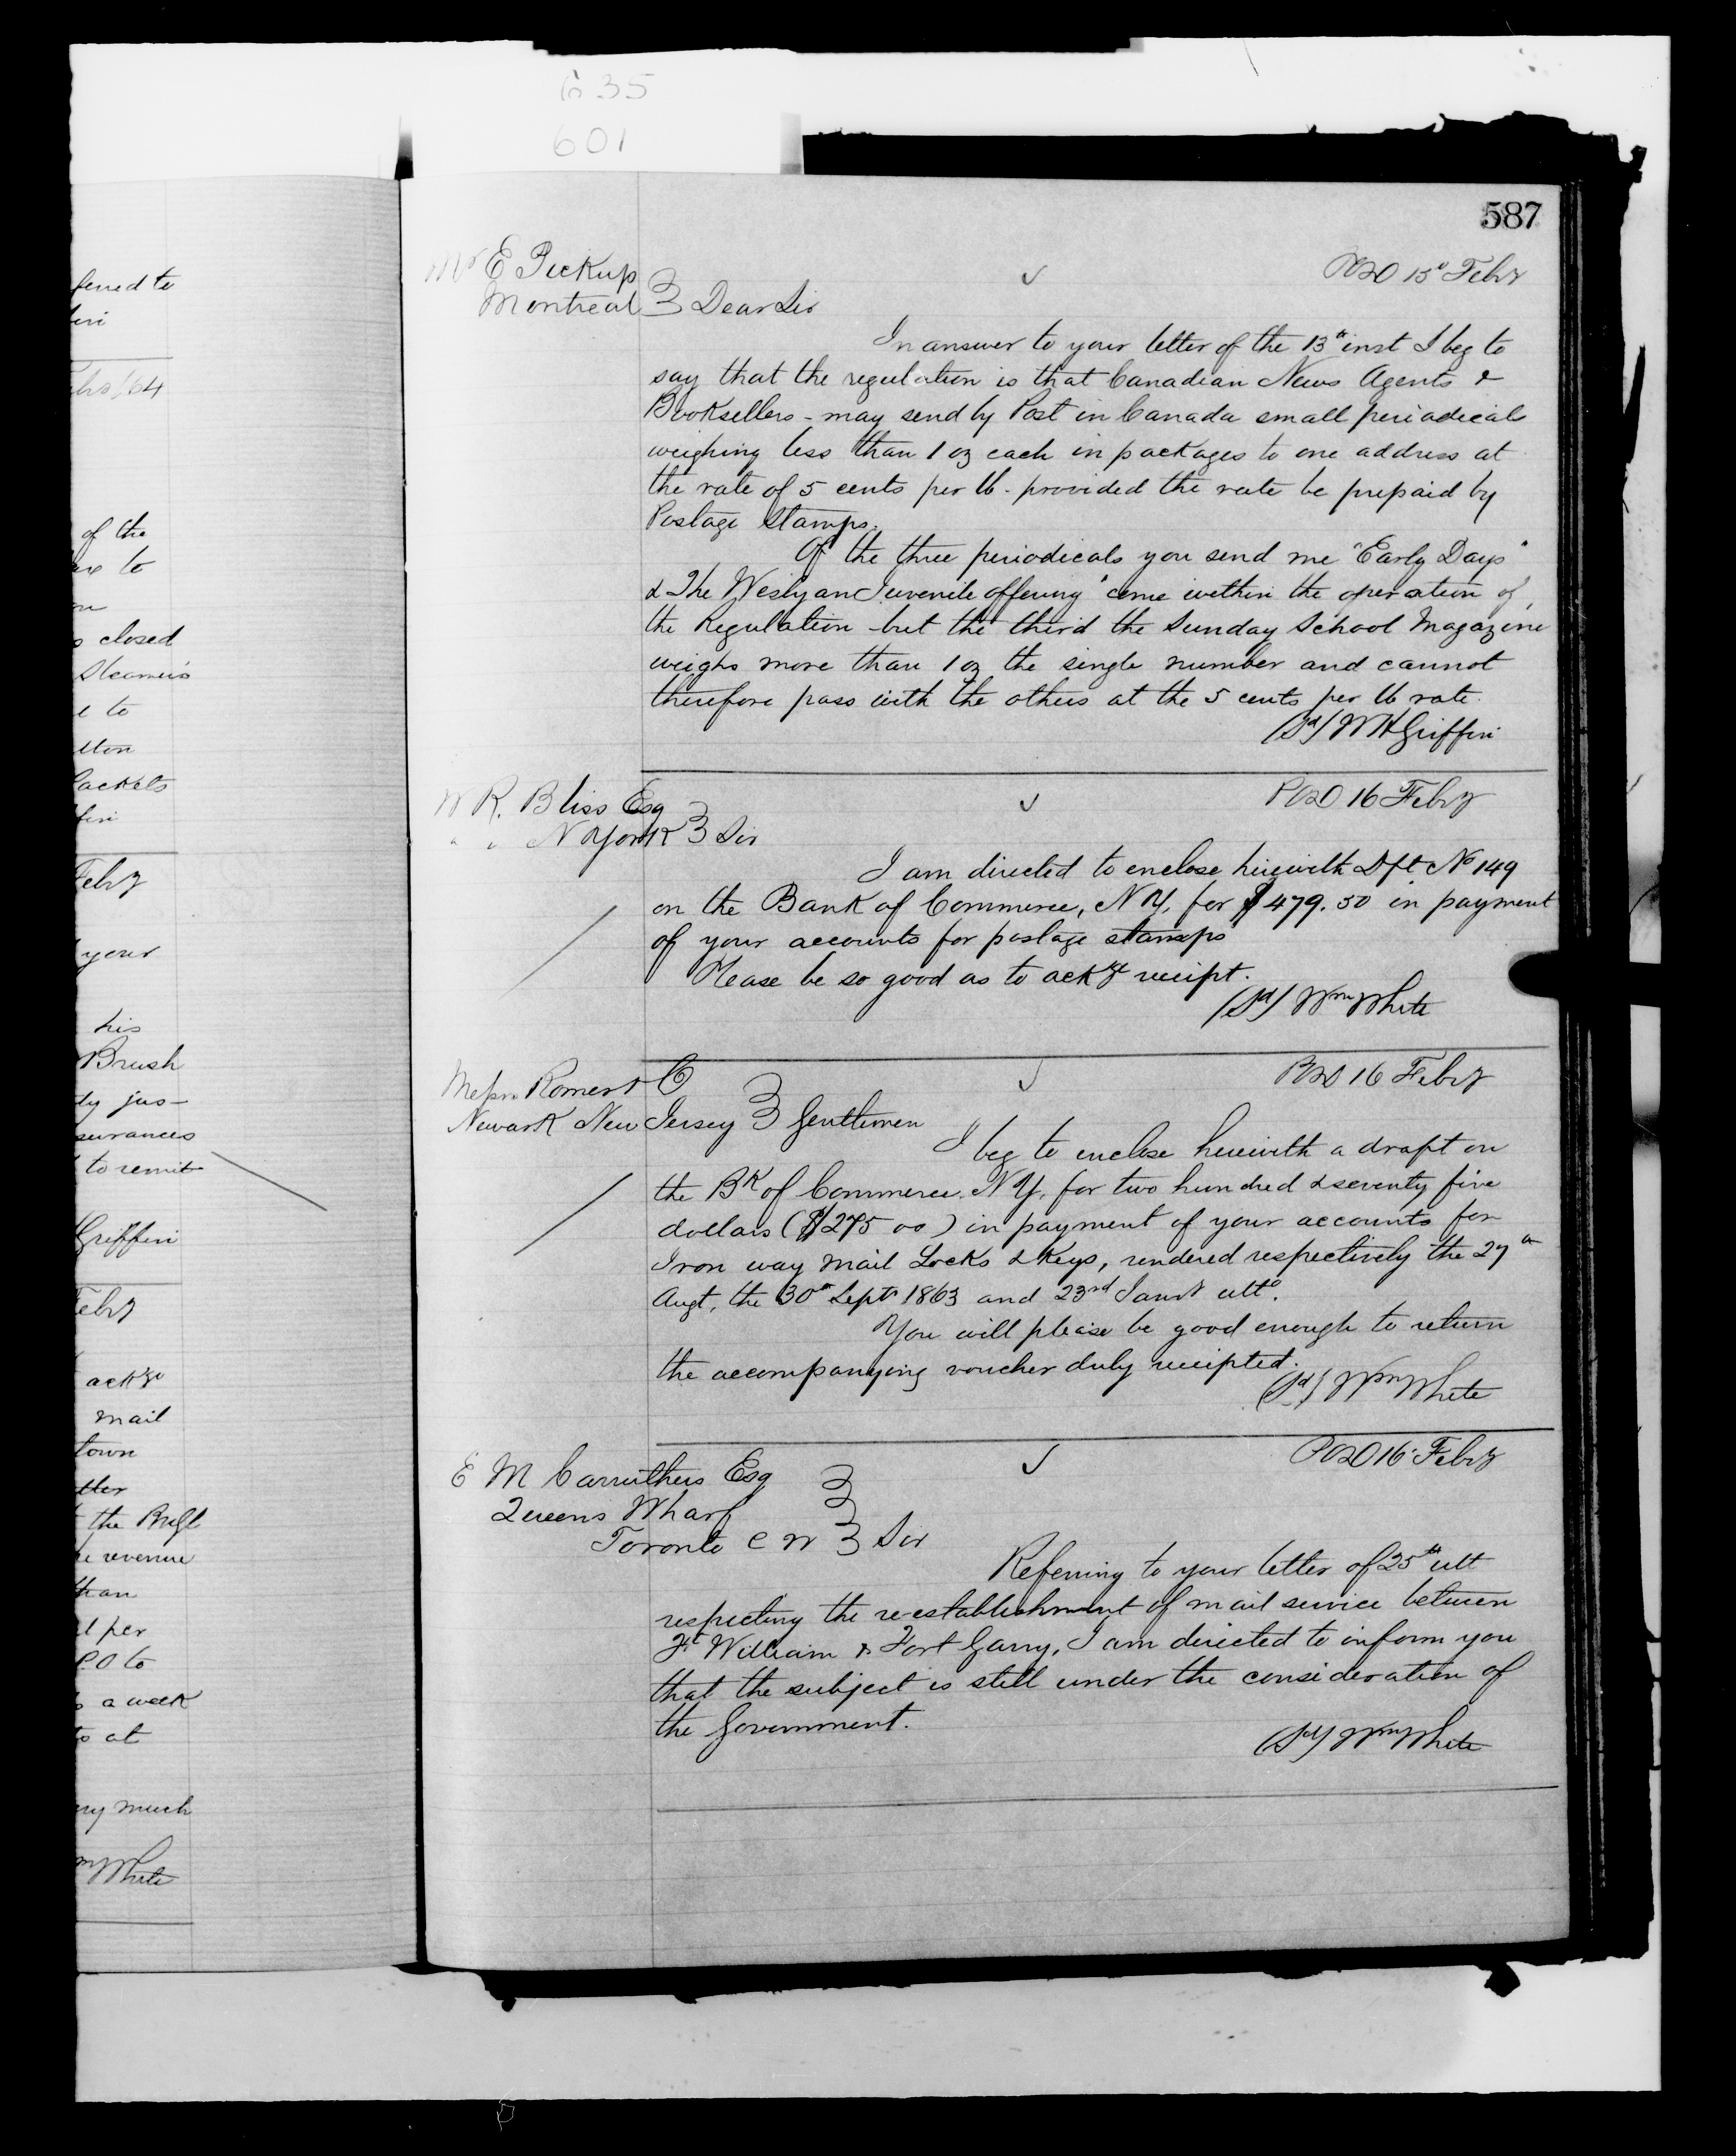 635
601
587
ferred to
Feby/64
of the
to
closed
Steamers
to
Packets
Feby
your
his
Brush
surances
to remit
Griffin
Feby
mail
town
the
revenue
than
per
P.O to
a week
at
much
White
Mr E Pickup
Montreal } Dear Sir
POD 15 Feby
In answer to your letter of the 13th inst I beg to
say that the regulation is that Canadian News Agents &
Booksellers - may send by Post in Canada small periodicals
weighing less than 1 oz each in packages to one address at
the rate of 5 cents per lb - provided the rate be prepaid by
Postage Stamps.
Of the three periodicals you send me "Early Days"
& The Weslyan Juvenile offering" come within the operation of
the Regulation - but the third the Sunday School Magazine
weighs more than 1 oz the single number and cannot
therefore pass with the others at the 5 cents per lb rate.
(Sd) W H Griffin
W R. Bliss Esq
N York } Sir
POD 16 Feby
I am directed to enclose herewith Dft No 149
on the Bank of Commerce, N Y, for $479.50 in payment
of your accounts for postage stamps
Please be so good as to ackge receipt.
(Sd) Wm White
Messrs Romer & Co
Newark New Jersey } Gentlemen
POD 16 Feby
I beg to enclose herewith a draft on
the Bk of Commerce. N Y, for two hundred & seventy five
dollars ($275 00) in payment of your accounts for
Iron way mail Locks & Keys, rendered respectively the 27th
Augt, the 30th Septr 1863 and 23rd Jany ulto.
You will please be good enough to return
the accompanying voucher duly receipted.
(Sd) Wm White
E M Carruthers Esq
Queens Wharf
Toronto C W } Sir
POD 16 Feby
Referring to your letter of 25th ult
respecting the re-establishment of mail service between
Ft William & Fort Garry, I am directed to inform you
that the subject is still under the consideration of
the Government.
(Sd) Wm White